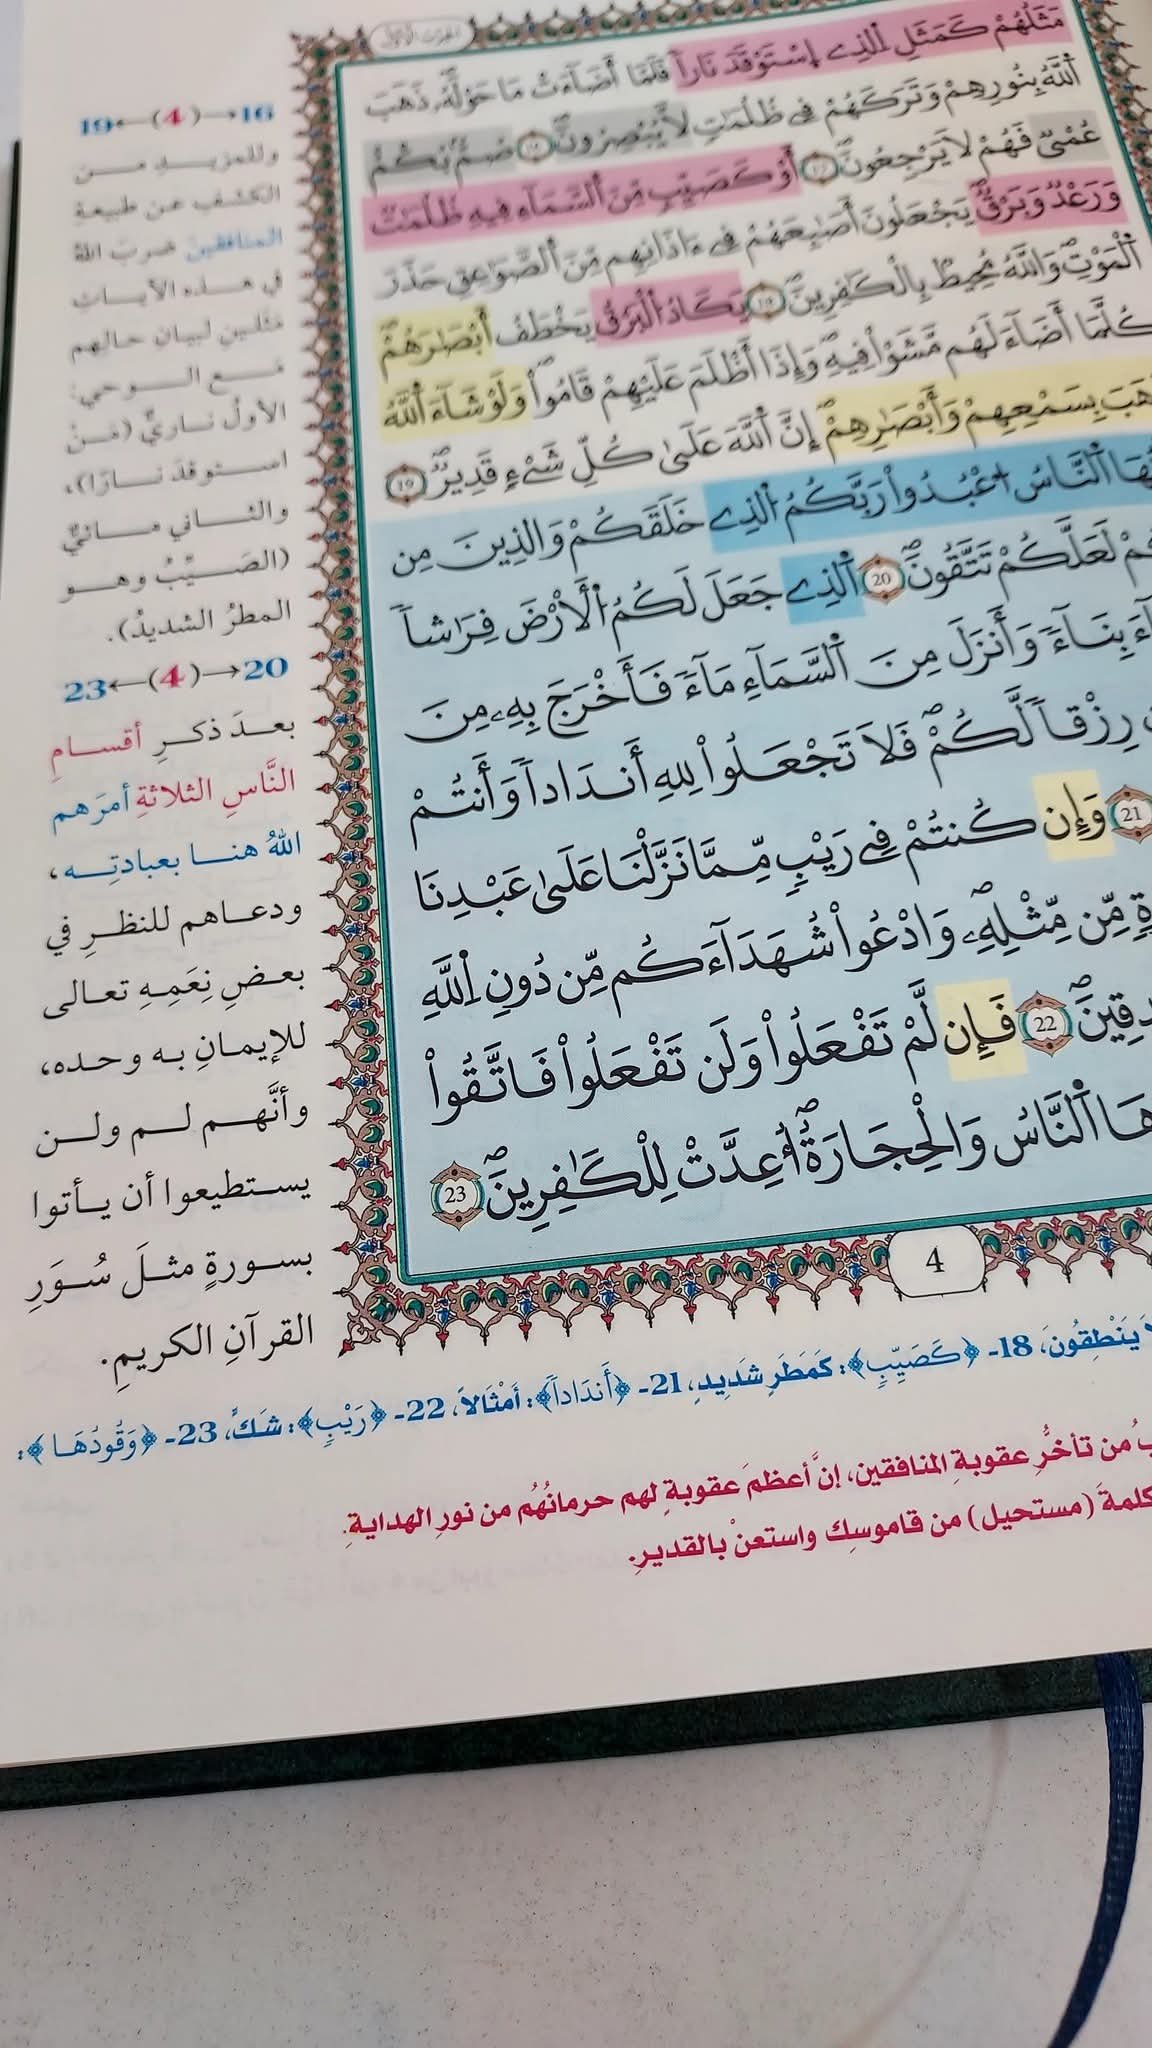 الجزء الأول
مَثَلُهُمْ كَمَثَلِ اِ۬لذِے اِ۪سْتَوْقَدَ نَاراٗ فَلَمَّآ أَضَآءَتْ مَا حَوْلَهُۥ ذَهَبَ
اَ۬للَّهُ بِنُورِهِمْ وَتَرَكَهُمْ فِے ظُلُمَٰتٖ لَّا يُبْصِرُونَۖ ۝١٦ صُمُّۢ بُكْمٌ
عُمْيٞ فَهُمْ لَا يَرْجِعُونَۖ ۝١٧ أَوْ كَصَيِّبٖ مِّنَ اَ۬لسَّمَآءِ فِيهِ ظُلُمَٰتٞ
وَرَعْدٞ وَبَرْقٞ يَجْعَلُونَ أَصَٰبِعَهُمْ فِےٓ ءَاذَانِهِم مِّنَ اَ۬لصَّوَٰعِقِ حَذَرَ
اَ۬لْمَوْتِۖ وَاللَّهُ مُحِيطُۢ بِالْكَٰفِرِينَۖ ۝١٨ يَكَادُ اُ۬لْبَرْقُ يَخْطَفُ أَبْصَٰرَهُمْۖ
كُلَّمَآ أَضَآءَ لَهُم مَّشَوْاْ فِيهِۖ وَإِذَآ أَظْلَمَ عَلَيْهِمْ قَامُواْۖ وَلَوْ شَآءَ اَ۬للَّهُ
بِسَمْعِهِمْ وَأَبْصَٰرِهِمْۖ إِنَّ اَ۬للَّهَ عَلَىٰ كُلِّ شَےْءٖ قَدِيرٞۖ ۝١٩
اَ۬لنَّاسُ اُ۟عْبُدُواْ رَبَّكُمُ اُ۬لذِے خَلَقَكُمْ وَالذِينَ مِن
لَعَلَّكُمْ تَتَّقُونَۖ 20 اَ۬لذِے جَعَلَ لَكُمُ اُ۬لْأَرْضَ فِرَٰشاٗ
بِنَآءٗ وَأَنزَلَ مِنَ اَ۬لسَّمَآءِ مَآءٗ فَأَخْرَجَ بِهِۦ مِنَ
رِزْقاٗ لَّكُمْۖ فَلَا تَجْعَلُواْ لِلهِ أَندَاداٗ وَأَنتُمْ
21 وَإِن كُنتُمْ فِے رَيْبٖ مِّمَّا نَزَّلْنَا عَلَىٰ عَبْدِنَا
مِّن مِّثْلِهِۦۖ وَادْعُواْ شُهَدَآءَكُم مِّن دُونِ اِ۬للَّهِ
22 فَإِن لَّمْ تَفْعَلُواْ وَلَن تَفْعَلُواْ فَاتَّقُواْ
اَ۬لنَّاسُ وَالْحِجَارَةُۖ أُعِدَّتْ لِلْكَٰفِرِينَۖ 23
4
16→(4)←19
وللمزيدِ من
الكشفِ عن طبيعةِ
المنافقين ضربَ اللهُ
في هذه الآياتِ
مَثَلين لبيانِ حالِهم
مع الوحي:
الأولُ ناريٌّ (مَنْ
استوقدَ نارًا)،
والثاني مائيٌّ
(الصَيِّبُ وهو
المطرُ الشديدُ).
20→(4)←23
بعدَ ذكرِ أقسامِ
النَّاسِ الثلاثةِ أمرَهم
اللهُ هنا بعبادتِه،
ودعاهم للنظرِ في
بعضِ نِعَمِهِ تعالى
للإيمانِ به وحده،
وأنَّهم لم ولن
يستطيعوا أن يأتوا
بسورةٍ مثلَ سُوَرِ
القرآنِ الكريمِ.
يَنْطِقُونَ، 18- ﴿كَصَيِّبٍ﴾: كَمَطَرٍ شَدِيدٍ، 21- ﴿أَندَاداٗ﴾: أَمْثَالاً، 22- ﴿رَيْبٍ﴾: شَكٍّ، 23- ﴿وَقُودُهَا﴾:
من تأخُّرِ عقوبةِ المنافقين، إنَّ أعظمَ عقوبةٍ لهم حرمانُهُم من نورِ الهدايةِ.
كلمةَ (مستحيل) من قاموسِك واستعنْ بالقديرِ.